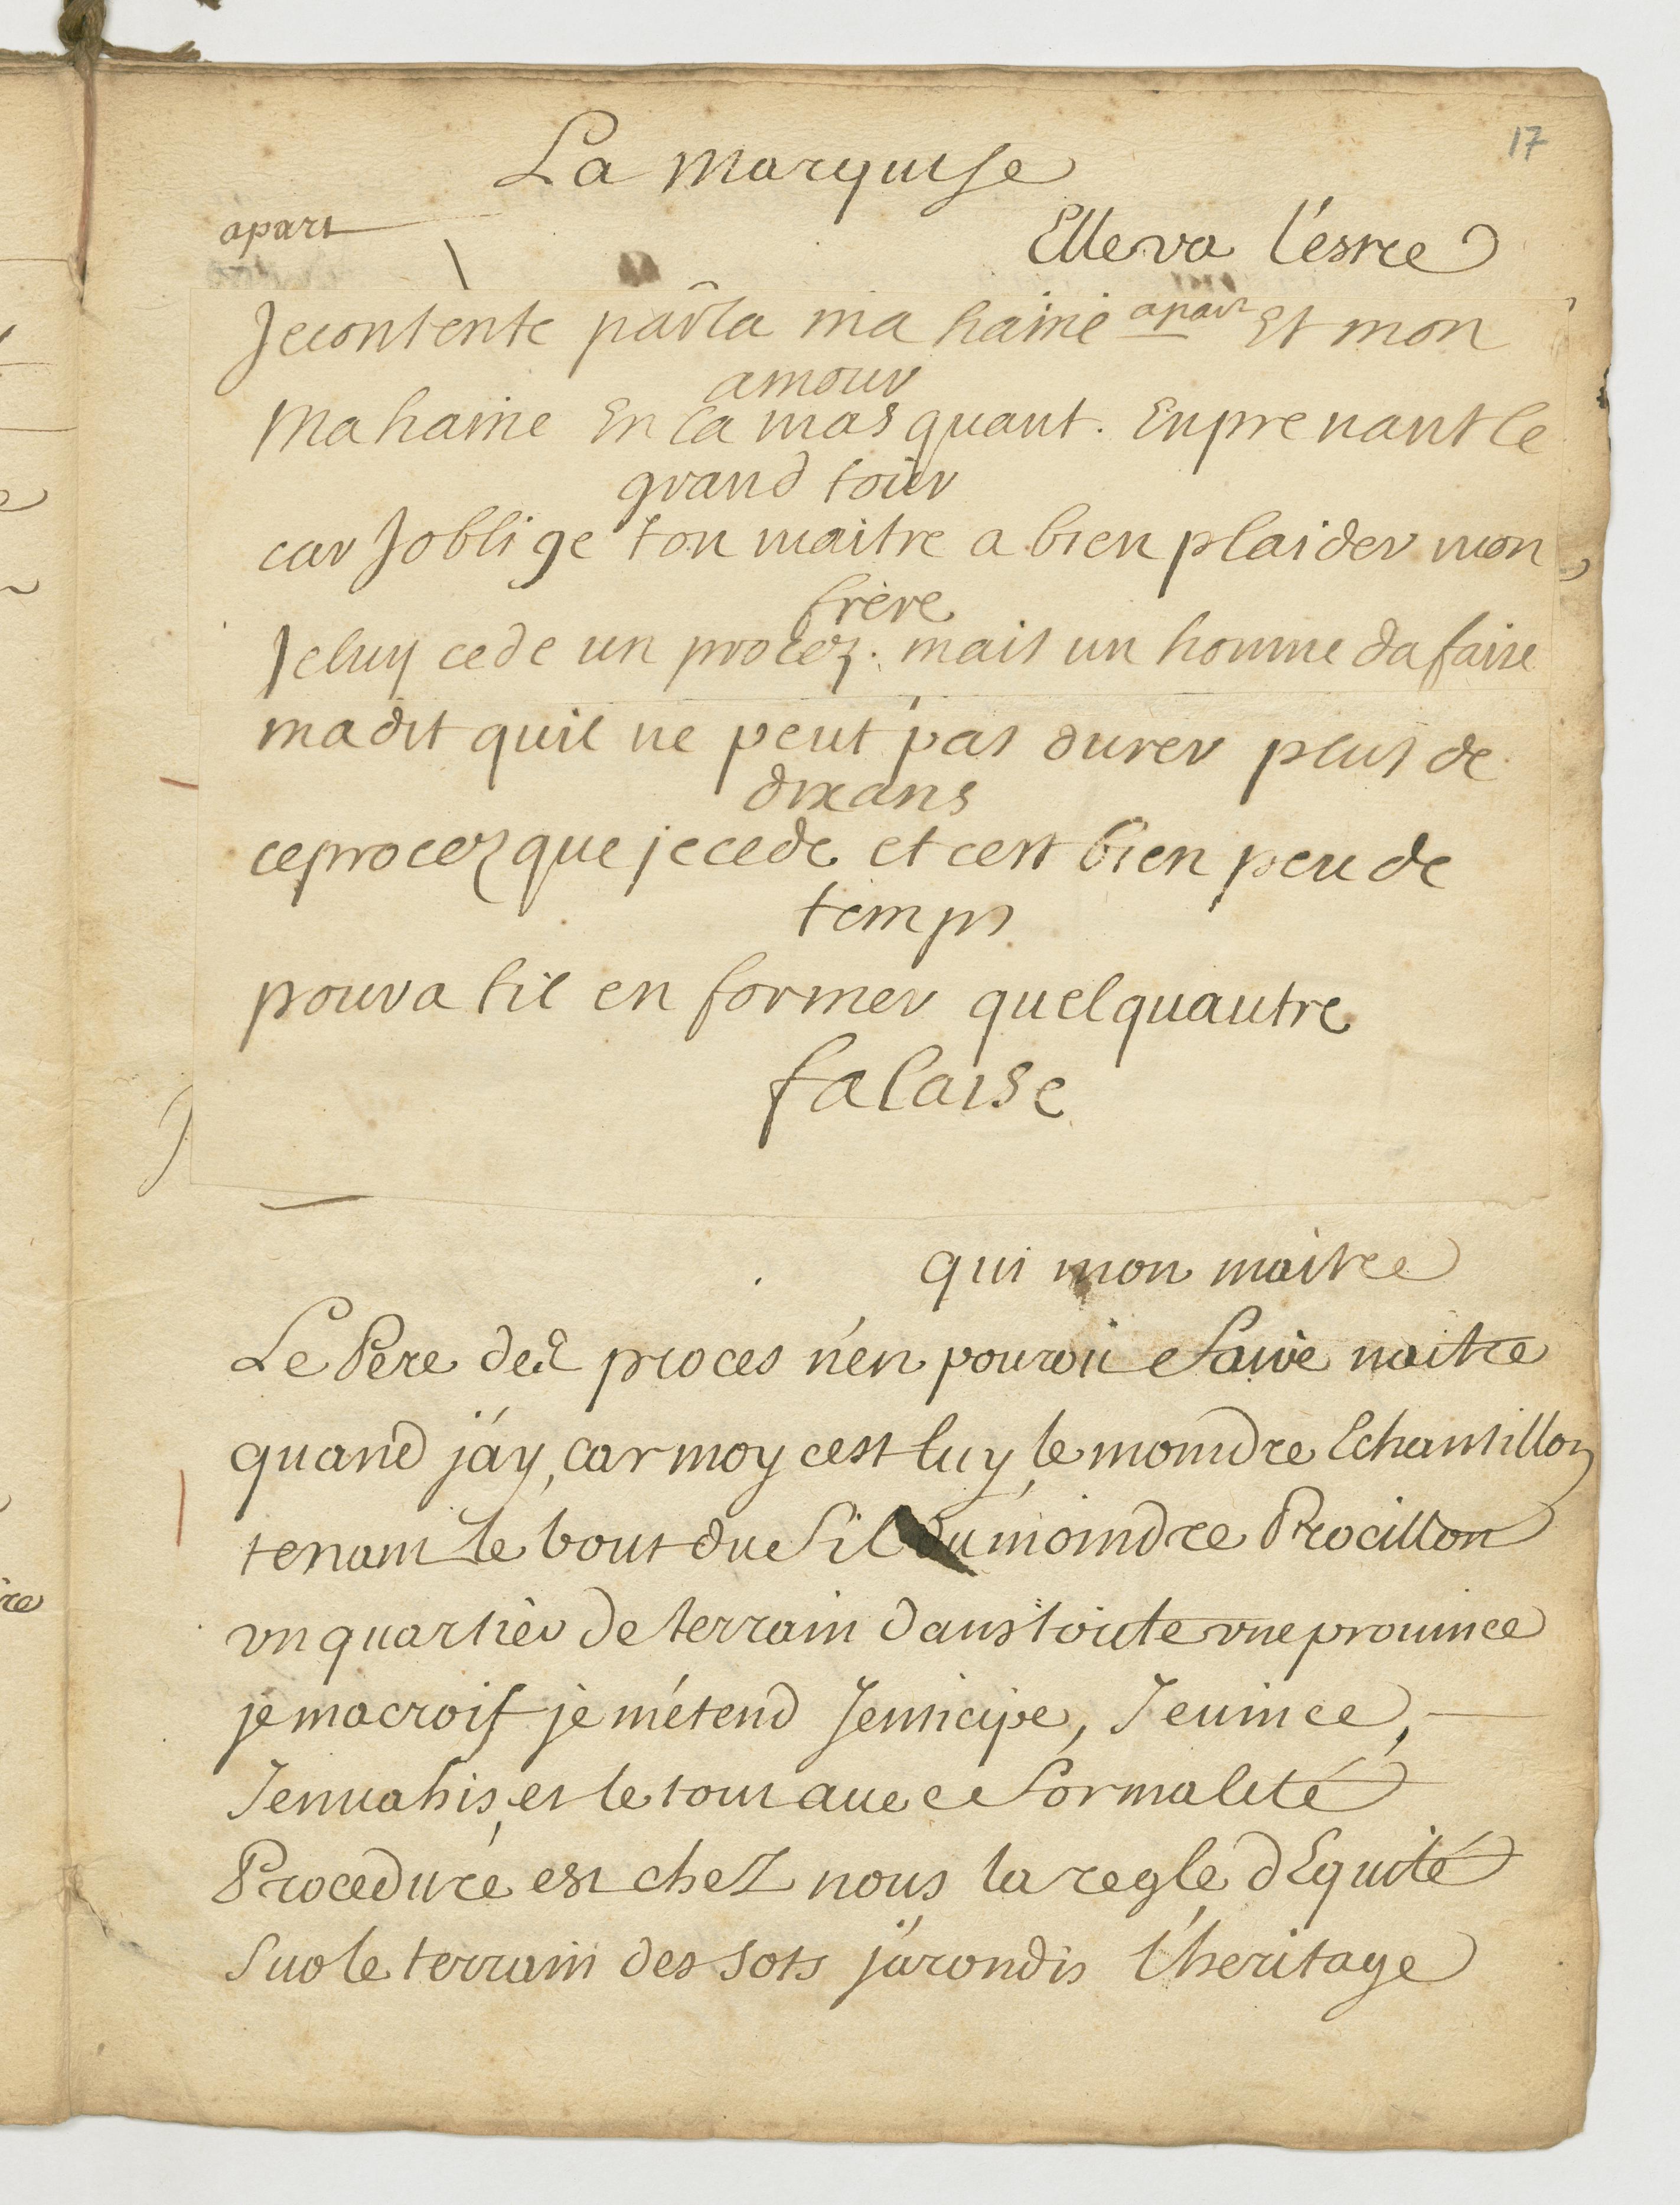 17
La Marquise
apart
Elle va l'estre
Je contente par la ma haine apart Et mon
amour
Ma haine En la masquant. En prenant le
grand tour
car Joblige ton maitre a bien plaider mon
frere
Je luy cede un procez. mais un homme dafaire
ma dit quil ne peut pas durer plus de
dix ans
ce procez que je cede et cest bien peu de
temps
poura til en former quelquautre
falaise
qui mon maitre
Le Pere des proces n'en pouroit faire naitre
quand j'ay, car moy cest luy, le moindre Echantillon
tenant le bout du fil du moindre Procillon
vn quartier de terrain dans toute vne prouince
je macrois je m'étend Jenticipe, Jeuince,
Jenuahis, et le tout auec formalité
Procedure est chez nous la regle dEquité
Sur le terrain des sots j'arondis l'heritage